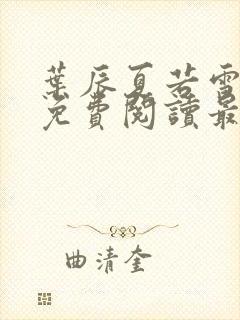 葉辰夏若雪
免費閱讀最
曲清奎